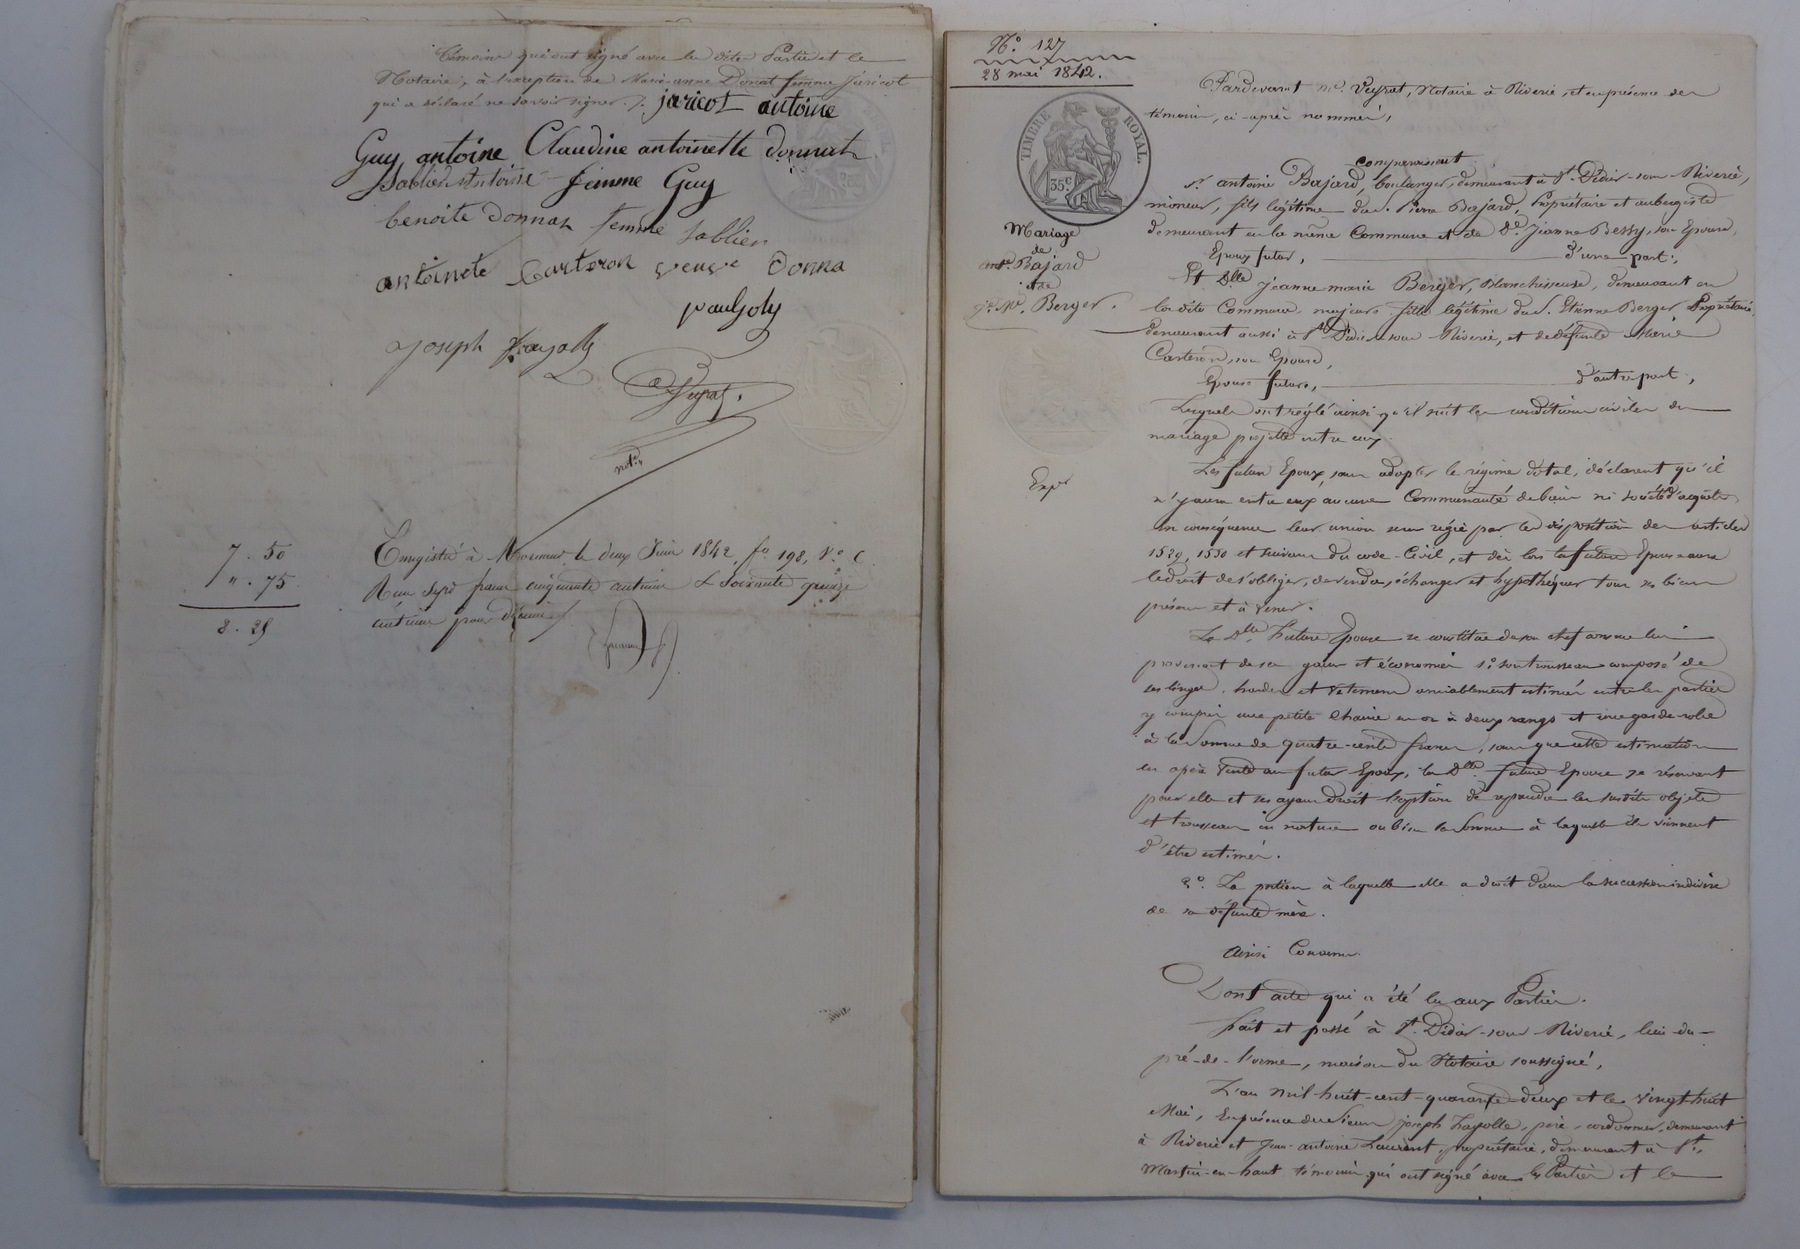 témoins qui ont signé avec les dites Parties et le
Notaire, à l'exception de Marie-anne Donat femme Jaricot
qui a déclaré ne savoir signer. /. jaricot antoine
Guy antoine Claudine antoinette donnat
Sablier Antoine femme Guy
benoite donnat femme Sablier
antoinete Carteron veuve Donna
paul joly
Joseph
Veyrat
not.re
7 . 50
" . 75
8 . 25
Enregistré à Mornant le deux Juin 1842, f.o 198, V.o C.
Reçu sept francs cinquante centimes & soixante quinze
centimes pour décime /.
N.o 127
28 mai 1842.
TIMBRE ROYAL.
35.c
Mariage
de
ant.e Bajard
et de
j.ne M.ie Berger.
Exp.é
Pardevant M.e Veyrat, Notaire à Riverie, et en présence des
témoins, ci-après nommés,
Comparaissent
S.r antoine Bajard, boulanger, demeurant à S.t Didier-sous-Riverie,
mineur, fils légitime du S. Pierre Bajard, Propriétaire et aubergiste
demeurant en la même Commune et de D.e Jeanne Bessy, son Epouse,
Epoux futur, d'une part;
Et D.lle jeanne-marie Berger, Blanchisseuse, demeurant en
la dite Commune, majeure, fille légitime du S. Etienne Berger Propriétaire,
demeurant aussi à S.t Didier sous Riverie, et de défunte Marie
Carteron, son Epouse,
Epouse future, d'autre part;
Lesquels ont réglé ainsi qu'il suit les conditions civiles du
mariage projetté entre eux.
Les futurs Epoux, sans adopter le régime dotal, déclarent qu'il
n'y aura entre eux aucune Communauté de biens ni société d'acquêts
en conséquence leur union sera régie par les dispositions des articles
1529, 1530 et suivans du code Civil, et dès lors la future Epouse aura
le droit de s'obliger, de vendre, échanger et hypothéquer tous ses biens
présens et à venir.
La D.lle future Epouse se constitue de son chef comme lui
provenant de ses gains et économies 1.o son trousseau composé de
ses linges, hardes et vêtemens amiablement estimés entre les parties
y compris une petite chaine en or à deux rangs et une garde-robe
à la somme de quatre-cents francs, sans que cette estimation
en opère vente au futur Epoux, la D.lle future Epouse se réservant
pour elle et ses ayans droit l'option de reprendre les susdits objets
et trousseau en nature ou bien la somme à laquelle ils viennent
d'être estimés.
2.o La portion à laquelle elle a droit dans la succession indivise
de sa défunte mère.
Ainsi Convenu.
Dont acte qui a été lu aux Parties.
Fait et passé à S.t Didier-sous-Riverie, lieu du-
pré-de-l'orme, maison du Notaire soussigné,
L'an mil huit-cent-quarante-deux et le vingt huit
Mai, En présence des Sieurs joseph Fayolle, père, cordonnier, demeurant
à Riverie et Jean-antoine Laurent, propriétaire, demeurant à S.t
Martin-en-haut témoins qui ont signé avec les Parties et le